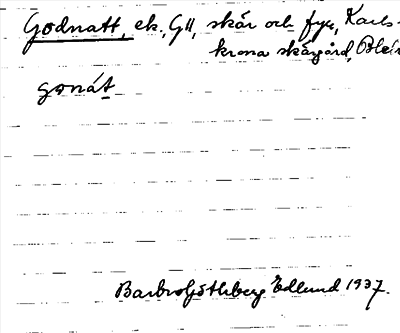 Godnatt, ek. GII, skär och fyr, Karls-
krona skärgård, Blek
gonát
Barbro Göthberg Edlund 1937.